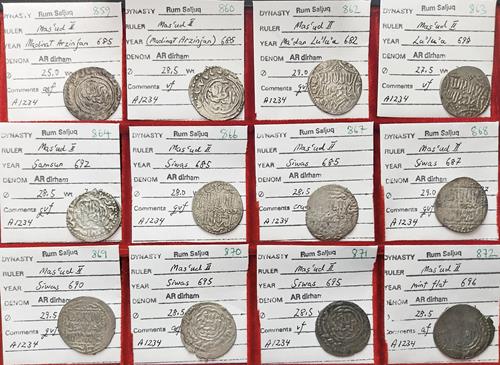 DYNASTY Rum Saljuq 859
RULER Mas'ud II
YEAR Madinat Arzinjan 685
DENOM AR dirham
Ø 25.0 wt
Comments
A1234
DYNASTY Rum Saljuq 860
RULER Mas'ud II
YEAR (Madinat Arzinjan) 685
DENOM AR dirham
Ø 28.5
Comments vf
A1234
DYNASTY Rum Saljuq 862
RULER Mas'ud II
YEAR Ma'dan Lu'lu'a 682
DENOM AR dirham
Ø 29.0
Comments gvf
A1234
DYNASTY Rum Saljuq 863
RULER Mas'ud II
YEAR Lu'lu'a
DENOM AR dirham
Ø 27.5
Comments vf
A1234
DYNASTY Rum Saljuq 864
RULER Mas'ud II
YEAR Samsun 692
DENOM AR dirham
Ø 28.5 wt
Comments gvf
A1234
DYNASTY Rum Saljuq 866
RULER Mas'ud II
YEAR Siwas 685
DENOM AR dirham
Ø 28.0
Comments gvf
A1234
DYNASTY Rum Saljuq 867
RULER Mas'ud II
YEAR Siwas 685
DENOM AR dirham
Ø 28.5
Comments
A1234
DYNASTY Rum Saljuq 868
RULER Mas'ud II
YEAR Siwas 687
DENOM AR dirham
Ø 29.0
Comments gvf
A1234
DYNASTY Rum Saljuq 869
RULER Mas'ud II
YEAR Siwas 690
DENOM AR dirham
Ø 29.5
Comments gvf
A1234
DYNASTY Rum Saljuq 870
RULER Mas'ud II
YEAR Siwas 695
DENOM AR dirham
Ø 28.5
Comments
A1234
DYNASTY Rum Saljuq 871
RULER Mas'ud II
YEAR Siwas 695
DENOM AR dirham
Ø 28.5
Comments vf
A1234
DYNASTY Rum Saljuq 872
RULER Mas'ud II
YEAR mint flat 696
DENOM AR dirham
Ø 28.5
Comments
A1234